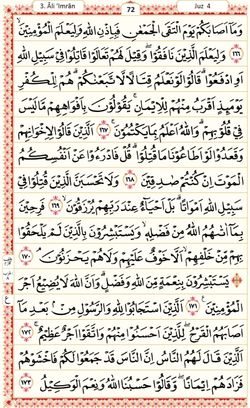 3. Āli 'Imrān 72 Juz 4
وَمَآ اَصَابَكُمْ يَوْمَ الْتَقَى الْجَمْعٰنِ فَبِاِذْنِ اللّٰهِ وَلِيَعْلَمَ الْمُؤْمِنِيْنَ
١٦٦ وَلِيَعْلَمَ الَّذِيْنَ نَافَقُوْا وَقِيْلَ لَهُمْ تَعَالَوْا قَاتِلُوْا فِيْ سَبِيْلِ اللّٰهِ
اَوِ ادْفَعُوْا قَالُوْا لَوْ نَعْلَمُ قِتَالًا لَّاتَّبَعْنٰكُمْ هُمْ لِلْكُفْرِ
يَوْمَئِذٍ اَقْرَبُ مِنْهُمْ لِلْاِيْمَانِ يَقُوْلُوْنَ بِاَفْوَاهِهِمْ مَّا لَيْسَ
فِيْ قُلُوْبِهِمْ وَاللّٰهُ اَعْلَمُ بِمَا يَكْتُمُوْنَ ١٦٧ اَلَّذِيْنَ قَالُوْا لِاِخْوَانِهِمْ
وَقَعَدُوْا لَوْ اَطَاعُوْنَا مَا قُتِلُوْا قُلْ فَادْرَءُوْا عَنْ اَنْفُسِكُمُ
الْمَوْتَ اِنْ كُنْتُمْ صٰدِقِيْنَ ١٦٨ وَلَا تَحْسَبَنَّ الَّذِيْنَ قُتِلُوْا فِيْ
سَبِيْلِ اللّٰهِ اَمْوَاتًا بَلْ اَحْيَآءٌ عِنْدَ رَبِّهِمْ يُرْزَقُوْنَ ١٦٩ فَرِحِيْنَ
بِمَآ اٰتٰىهُمُ اللّٰهُ مِنْ فَضْلِهٖ وَيَسْتَبْشِرُوْنَ بِالَّذِيْنَ لَمْ يَلْحَقُوْا
بِهِمْ مِّنْ خَلْفِهِمْ اَلَّا خَوْفٌ عَلَيْهِمْ وَلَا هُمْ يَحْزَنُوْنَ ١٧٠
يَسْتَبْشِرُوْنَ بِنِعْمَةٍ مِّنَ اللّٰهِ وَفَضْلٍ وَّاَنَّ اللّٰهَ لَا يُضِيْعُ اَجْرَ
الْمُؤْمِنِيْنَ ١٧١ اَلَّذِيْنَ اسْتَجَابُوْا لِلّٰهِ وَالرَّسُوْلِ مِنْۢ بَعْدِ مَآ
اَصَابَهُمُ الْقَرْحُ لِلَّذِيْنَ اَحْسَنُوْا مِنْهُمْ وَاتَّقَوْا اَجْرٌ عَظِيْمٌ ١٧٢
اَلَّذِيْنَ قَالَ لَهُمُ النَّاسُ اِنَّ النَّاسَ قَدْ جَمَعُوْا لَكُمْ فَاخْشَوْهُمْ
فَزَادَهُمْ اِيْمَانًا وَّقَالُوْا حَسْبُنَا اللّٰهُ وَنِعْمَ الْوَكِيْلُ ١٧٣